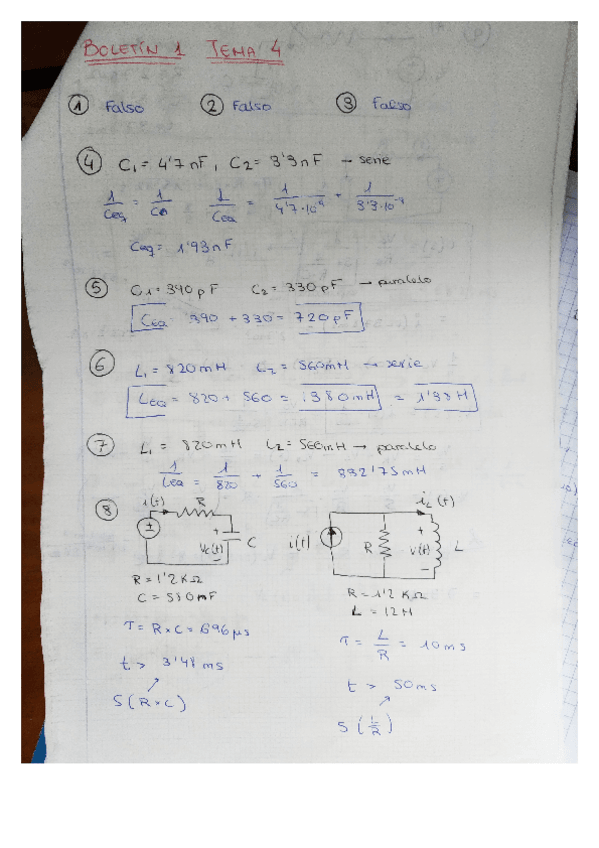 BOLETÍN 1 TEMA 4
① Falso ② Falso ③ Falso
④ C₁ = 4'7 nF, C₂ = 3'3 nF → serie
1/Ceq = 1/Cn 1/Ceq = 1/4'7·10⁻⁹ + 1/3'3·10⁻⁹
Ceq = 1'93 nF
⑤ C1 = 390 pF C₂ = 330 pF → paralelo
Ceq = 390 + 330 = 720 pF
⑥ L₁ = 820 mH L₂ = 560 mH → serie
Leq = 820 + 560 = 1380 mH = 1'38 H
⑦ L₁ = 820 mH L₂ = 560 mH → paralelo
1/Leq = 1/820 + 1/560 = 332'75 mH
⑧ i(t) R
+ Vc(t) - C
R = 1'2 KΩ
C = 580 nF
T = R×C = 696 μs
t > 3'48 ms
5(R×C)
iL(t)
i(t) R + v(t) - L
R = 1'2 KΩ
L = 12 H
T = L/R = 10 ms
t > 50 ms
5(L/R)